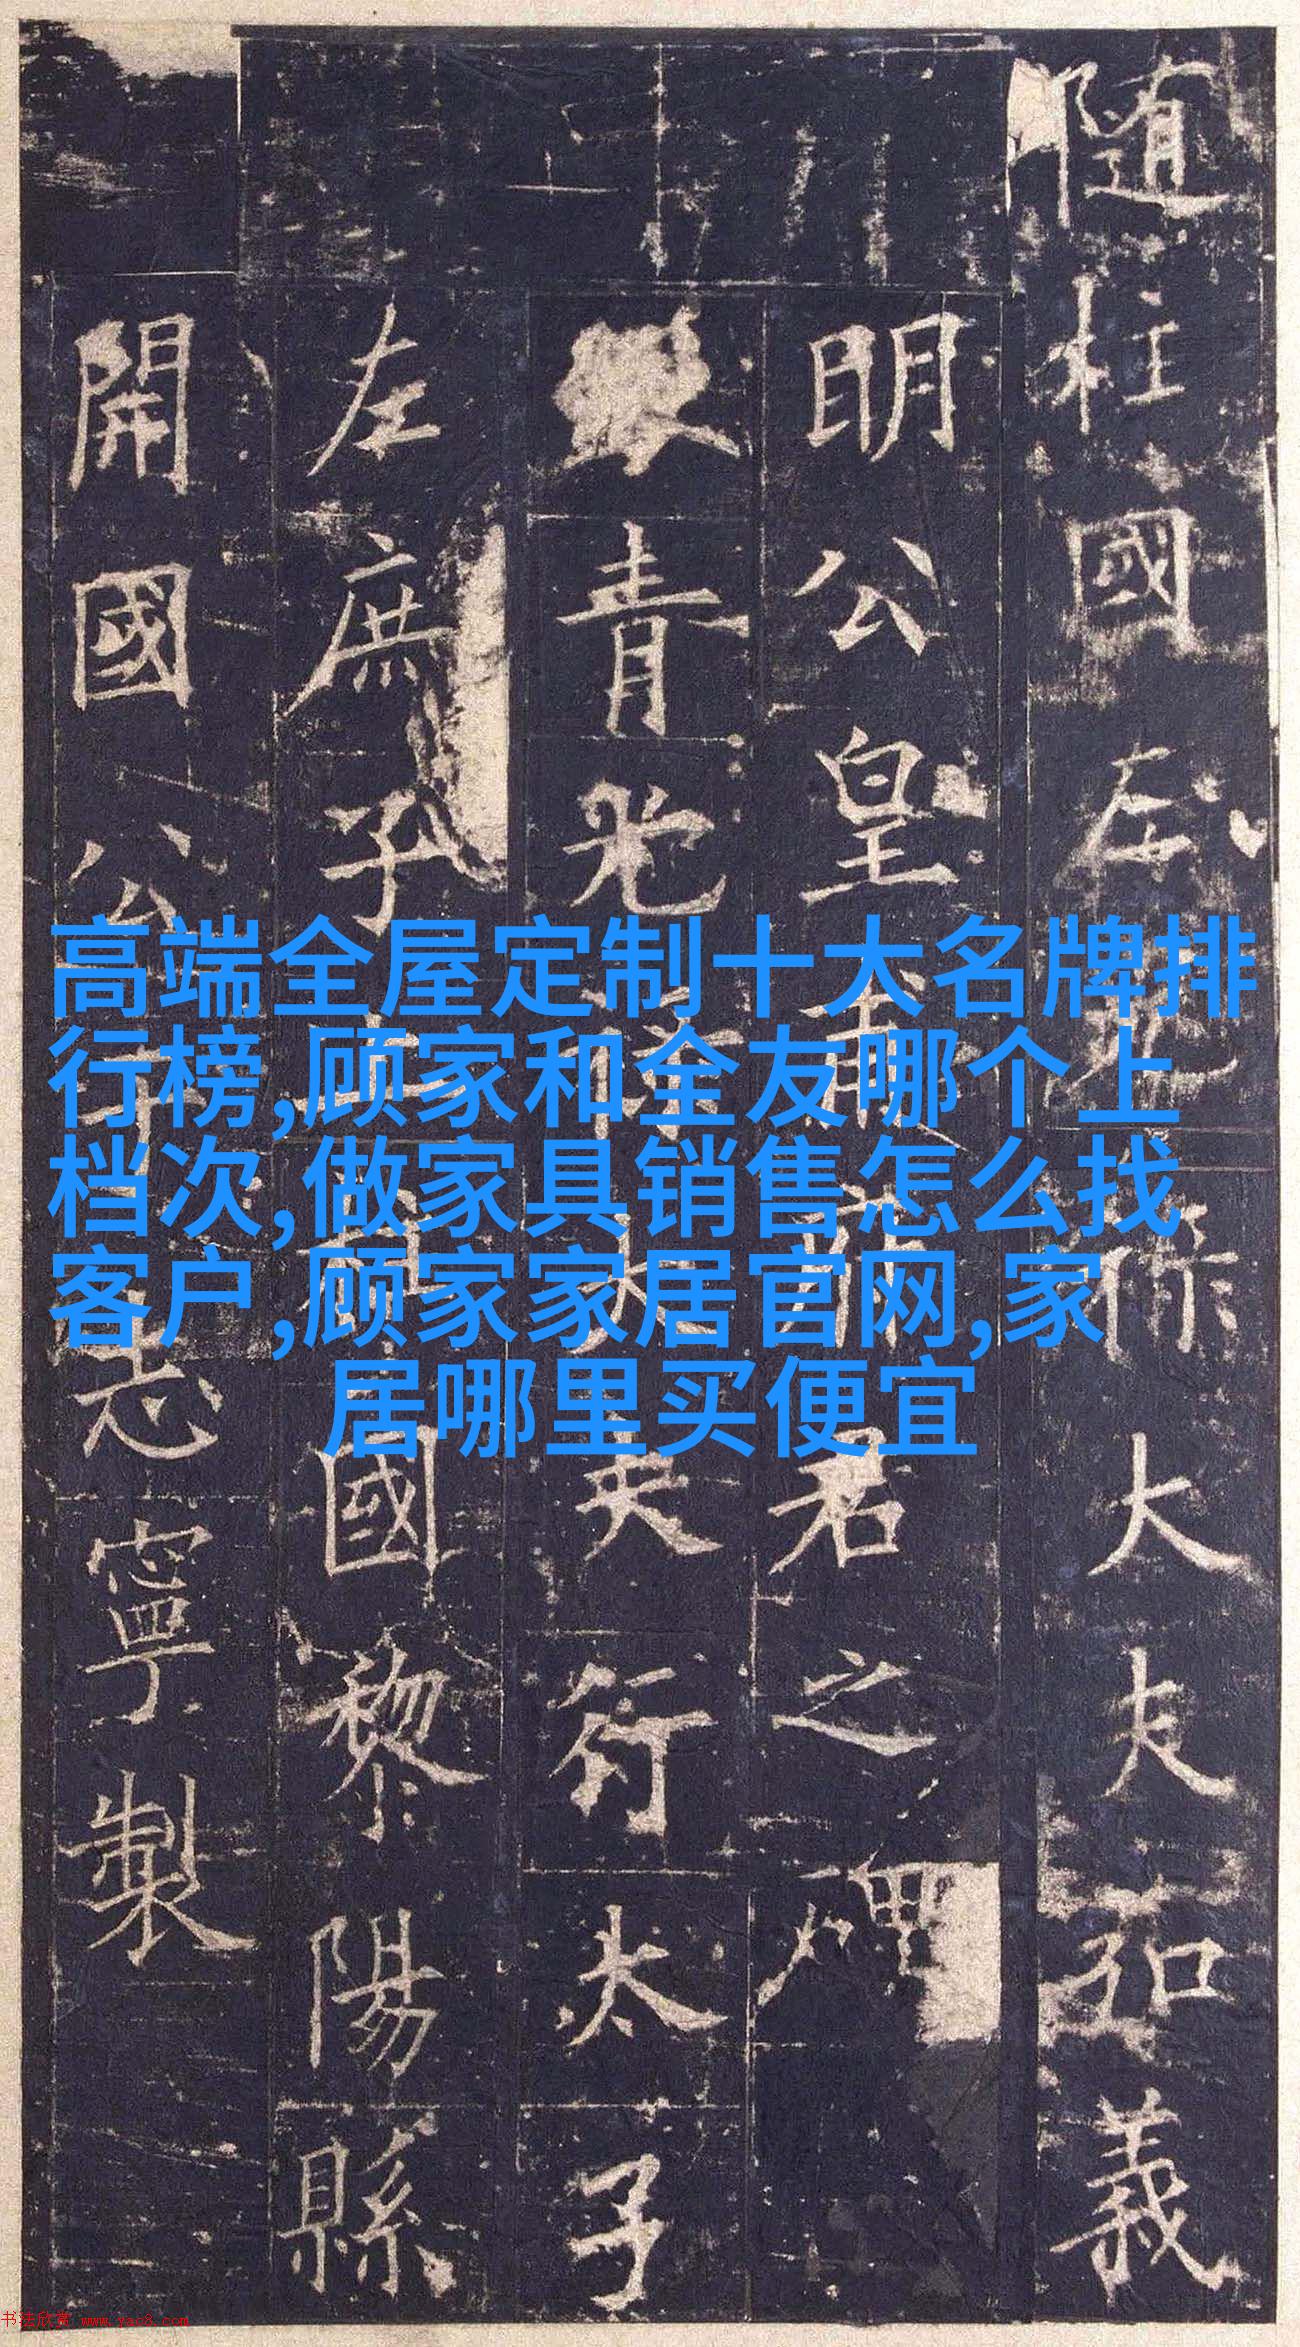 隨柱國左光祿大夫弘義
明公皇甫府君之碑
銀青光祿大夫行太子
左庶子上柱國黎陽縣
開國公于志寧製
高端全屋定制十大名牌排
行榜,顾家和全友哪个上
档次,做家具销售怎么找
客户,顾家家居官网,家
居哪里买便宜
书法欣赏 www.yac8.com